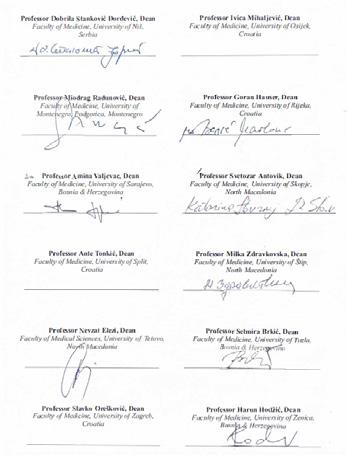 Professor Dobrila Stanković Đorđević, Dean
Faculty of Medicine, University of Niš,
Serbia
Professor Ivica Mihaljević, Dean
Faculty of Medicine, University of Osijek,
Croatia
Professor Miodrag Radunović, Dean
Faculty of Medicine, University of
Montenegro, Podgorica, Montenegro
Professor Goran Hauser, Dean
Faculty of Medicine, University of Rijeka,
Croatia
Professor Amina Valjevac, Dean
Faculty of Medicine, University of Sarajevo,
Bosnia & Herzegovina
Professor Svetozar Antovik, Dean
Faculty of Medicine, University of Skopje,
North Macedonia
Professor Ante Tonkić, Dean
Faculty of Medicine, University of Split,
Croatia
Professor Milka Zdravkovska, Dean
Faculty of Medicine, University of Štip,
North Macedonia
Professor Nevzat Elezi, Dean
Faculty of Medical Sciences, University of Tetovo,
North Macedonia
Professor Selmira Brkić, Dean
Faculty of Medicine, University of Tuzla,
Bosnia & Herzegovina
Professor Slavko Orešković, Dean
Faculty of Medicine, University of Zagreb,
Croatia
Professor Harun Hodžić, Dean
Faculty of Medicine, University of Zenica,
Bosnia & Herzegovina